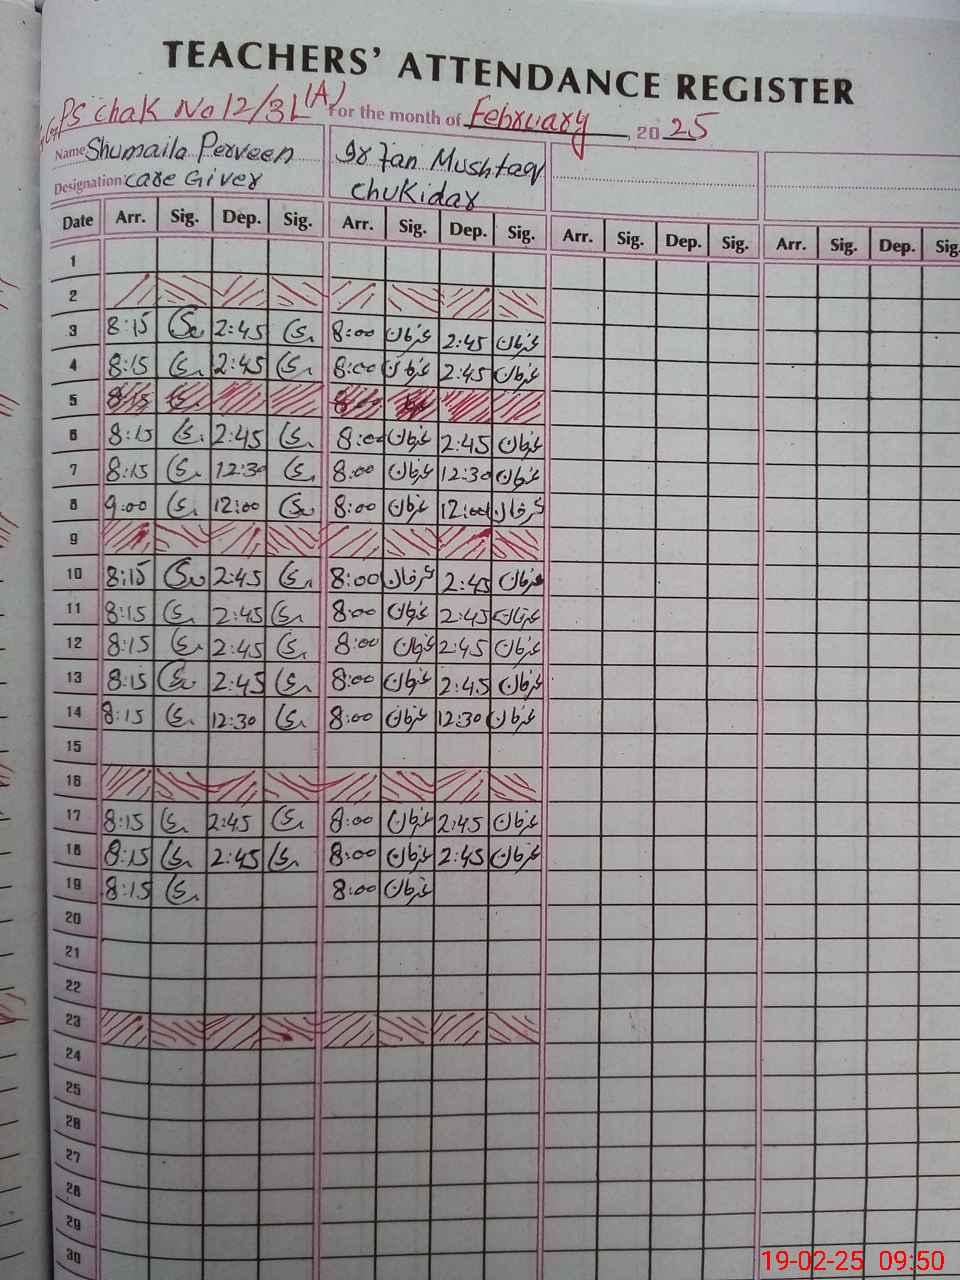 TEACHERS' ATTENDANCE REGISTER
PS Chak No 12/3L (A) For the month of February, 2025
Name Shumaila Perveen Irfan Mushtaq
Designation: Care Giver Chukidar
Date Arr. Sig. Dep. Sig. Arr. Sig. Dep. Sig. Arr. Sig. Dep. Sig. Arr. Sig. Dep. Sig.
1
2
3 8:15 2:45 8:00 عرفان 2:45 عرفان
4 8:15 2:45 8:00 عرفان 2:45 عرفان
5 8:15
6 8:15 2:45 8:00 عرفان 2:45 عرفان
7 8:15 12:30 8:00 عرفان 12:30 عرفان
8 9:00 12:00 8:00 عرفان 12:00 عرفان
9
10 8:15 2:45 8:00 عرفان 2:45 عرفان
11 8:15 2:45 8:00 عرفان 2:45 عرفان
12 8:15 2:45 8:00 عرفان 2:45 عرفان
13 8:15 2:45 8:00 عرفان 2:45 عرفان
14 8:15 12:30 8:00 عرفان 12:30 عرفان
15
16
17 8:15 2:45 8:00 عرفان 2:45 عرفان
18 8:15 2:45 8:00 عرفان 2:45 عرفان
19 8:15 8:00 عرفان
20
21
22
23
24
25
26
27
28
29
30
19-02-25 09:50